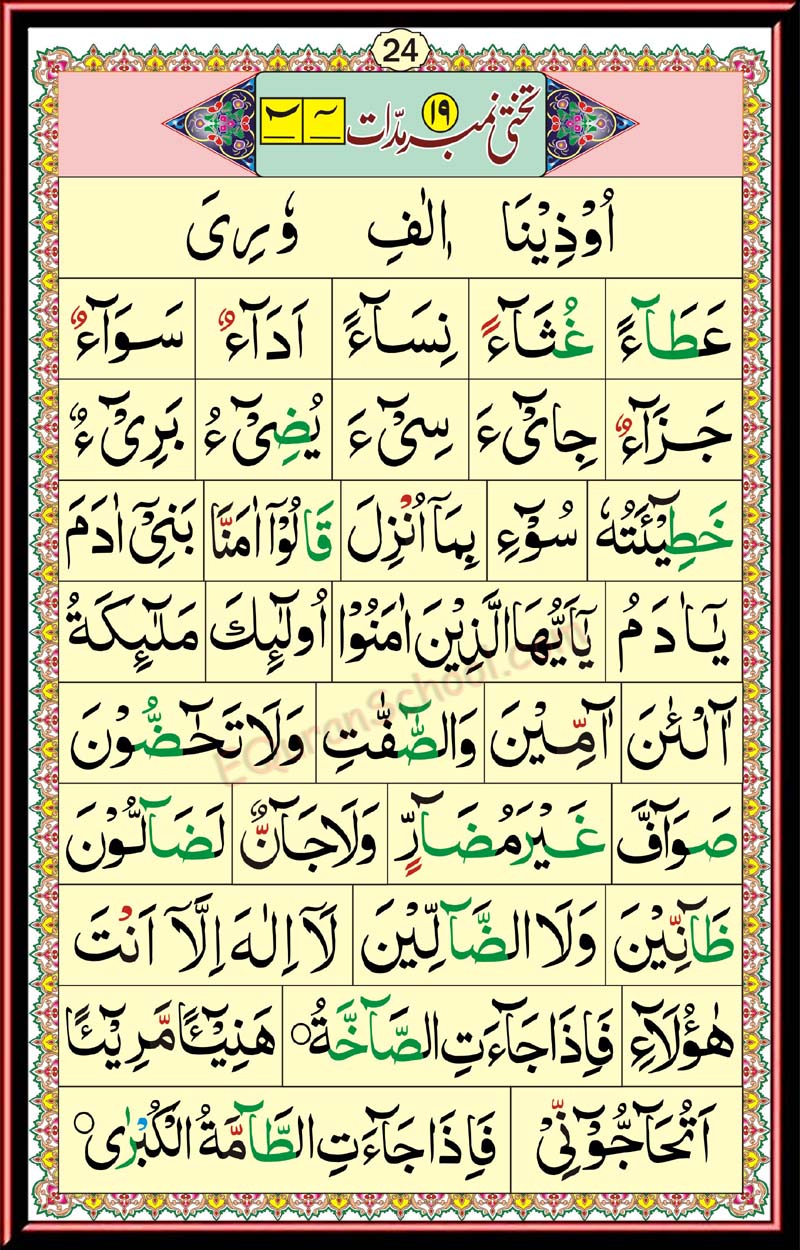 24
تختی نمبر ١٩ مدّات
اُوْذِيْنَا اٖلٰفِ وٗرِىَ
عَطَآءً غُثَآءً نِسَآءً اَدَآءٌ سَوَآءٌ
جَزَآءٌ جِاىْٓءَ سِىْٓءَ يُضِىْٓءُ بَرِىْٓءٌ
خَطِيْٓئَتُهٗ سُوْٓءِ بِمَآ اُنْزِلَ قَالُوْٓا اٰمَنَّا بَنِىْٓ اٰدَمَ
يَآاٰدَمُ يٰٓاَيُّهَا الَّذِيْنَ اٰمَنُوْا اُولٰٓئِكَ مَلٰٓئِكَةُ
آٰلْئٰنَ آٰمِّيْنَ وَالصّٰٓفّٰتِ وَلَا تَحٰٓضُّوْنَ
صَوَآفَّ غَيْرَ مُضَآرٍّ وَلَا جَآنٌّ لَضَآلُّوْنَ
ظَآنِّيْنَ وَلَا الضَّآلِّيْنَ لَآ اِلٰهَ اِلَّآ اَنْتَ
هٰٓؤُلَآءِ فَاِذَا جَآءَتِ الصَّآخَّةُ ۝ هَنِيْٓئًا مَّرِيْٓئًا
اَتُحَآجُّوْٓنِّىْ فَاِذَا جَآءَتِ الطَّآمَّةُ الْكُبْرٰى ۝
EQuranSchool.com